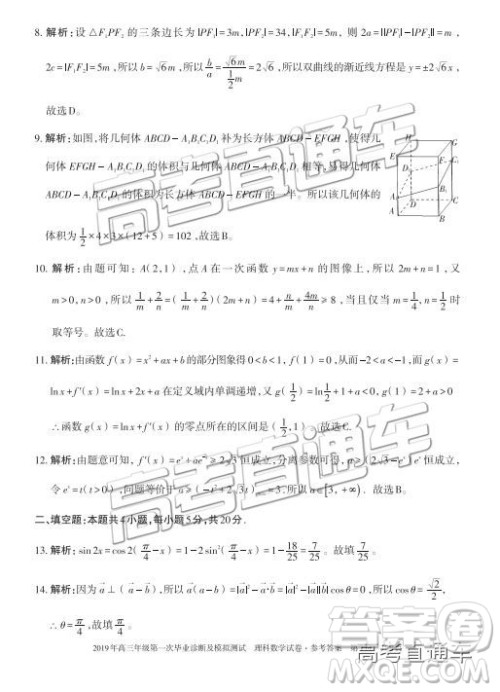 8. 解析：设△F₁PF₂的三条边长为|PF₁|=3m，|PF₂|=34，|F₁F₂|=5m，则 2a=||PF₁|-|PF₂||=m，
2c=|F₁F₂|=5m，所以b=√6m，所以b/a=√6m/(1/2 m)=2√6，所以双曲线的渐近线方程是y=±2√6x，
故选D。
9. 解析：如图，将几何体ABCD-A₁B₁C₁D₁补为长方体ABCD-A₂B₂C₂D₂，使得几
何体EFGH-A₁B₁C₁D₁的体积与几何体EFGH-ABCD相等，易得几何体
ABCD-A₁B₁C₁D₁的体积为长方体的一半。所以该几何体的
体积为1/2×4×3×(12+5)=102，故选B。
10. 解析：由题可知：A(2,1)，点A在一次函数y=mx+n的图像上，所以2m+n=1，又
m>0,n>0，所以1/m+2/n=(1/m+2/n)(2m+n)=4+n/m+4m/n≥8，当且仅当m=1/4,n=1/2时
取等号。故选C.
11. 解析：由函数f(x)=x²+ax+b的部分图象得0<b<1，f(1)=0，从而-2<a<-1，而g(x)=
lnx+f'(x)=lnx+2x+a在定义域内单调递增，g(1/2)=ln1/2+1+a<0，g(1)=2+a>0
∴函数g(x)=lnx+f'(x)的零点所在的区间是(1/2,1)。故选C.
12. 解析：由题意可知，f'(x)=eˣ+ae⁻ˣ≥2√3恒成立，分离参数可得，a≥(2√3-eˣ)eˣ恒成立，
令eˣ=t(t>0)，问题等价于a≥(-t²+2√3t)max=3. 所以a∈[3,+∞). 故选B.
二、填空题：本题共4小题，每小题5分，共20分．
13. 解析：sin2x=cos2(π/4-x)=1-2sin²(π/4-x)=1-18/25=7/25. 故填7/25。
14. 解析：因为a⊥(a-b)，所以a(a-b)=|a|²-a·b=|a|²-|a||b|cosθ=0，所以cosθ=√2/2，
∴θ=π/4. 故填π/4.
2019年高三年级第一次毕业诊断及模拟测试 理科数学试卷·参考答案
高考直通车
高考直通车
高考直通车